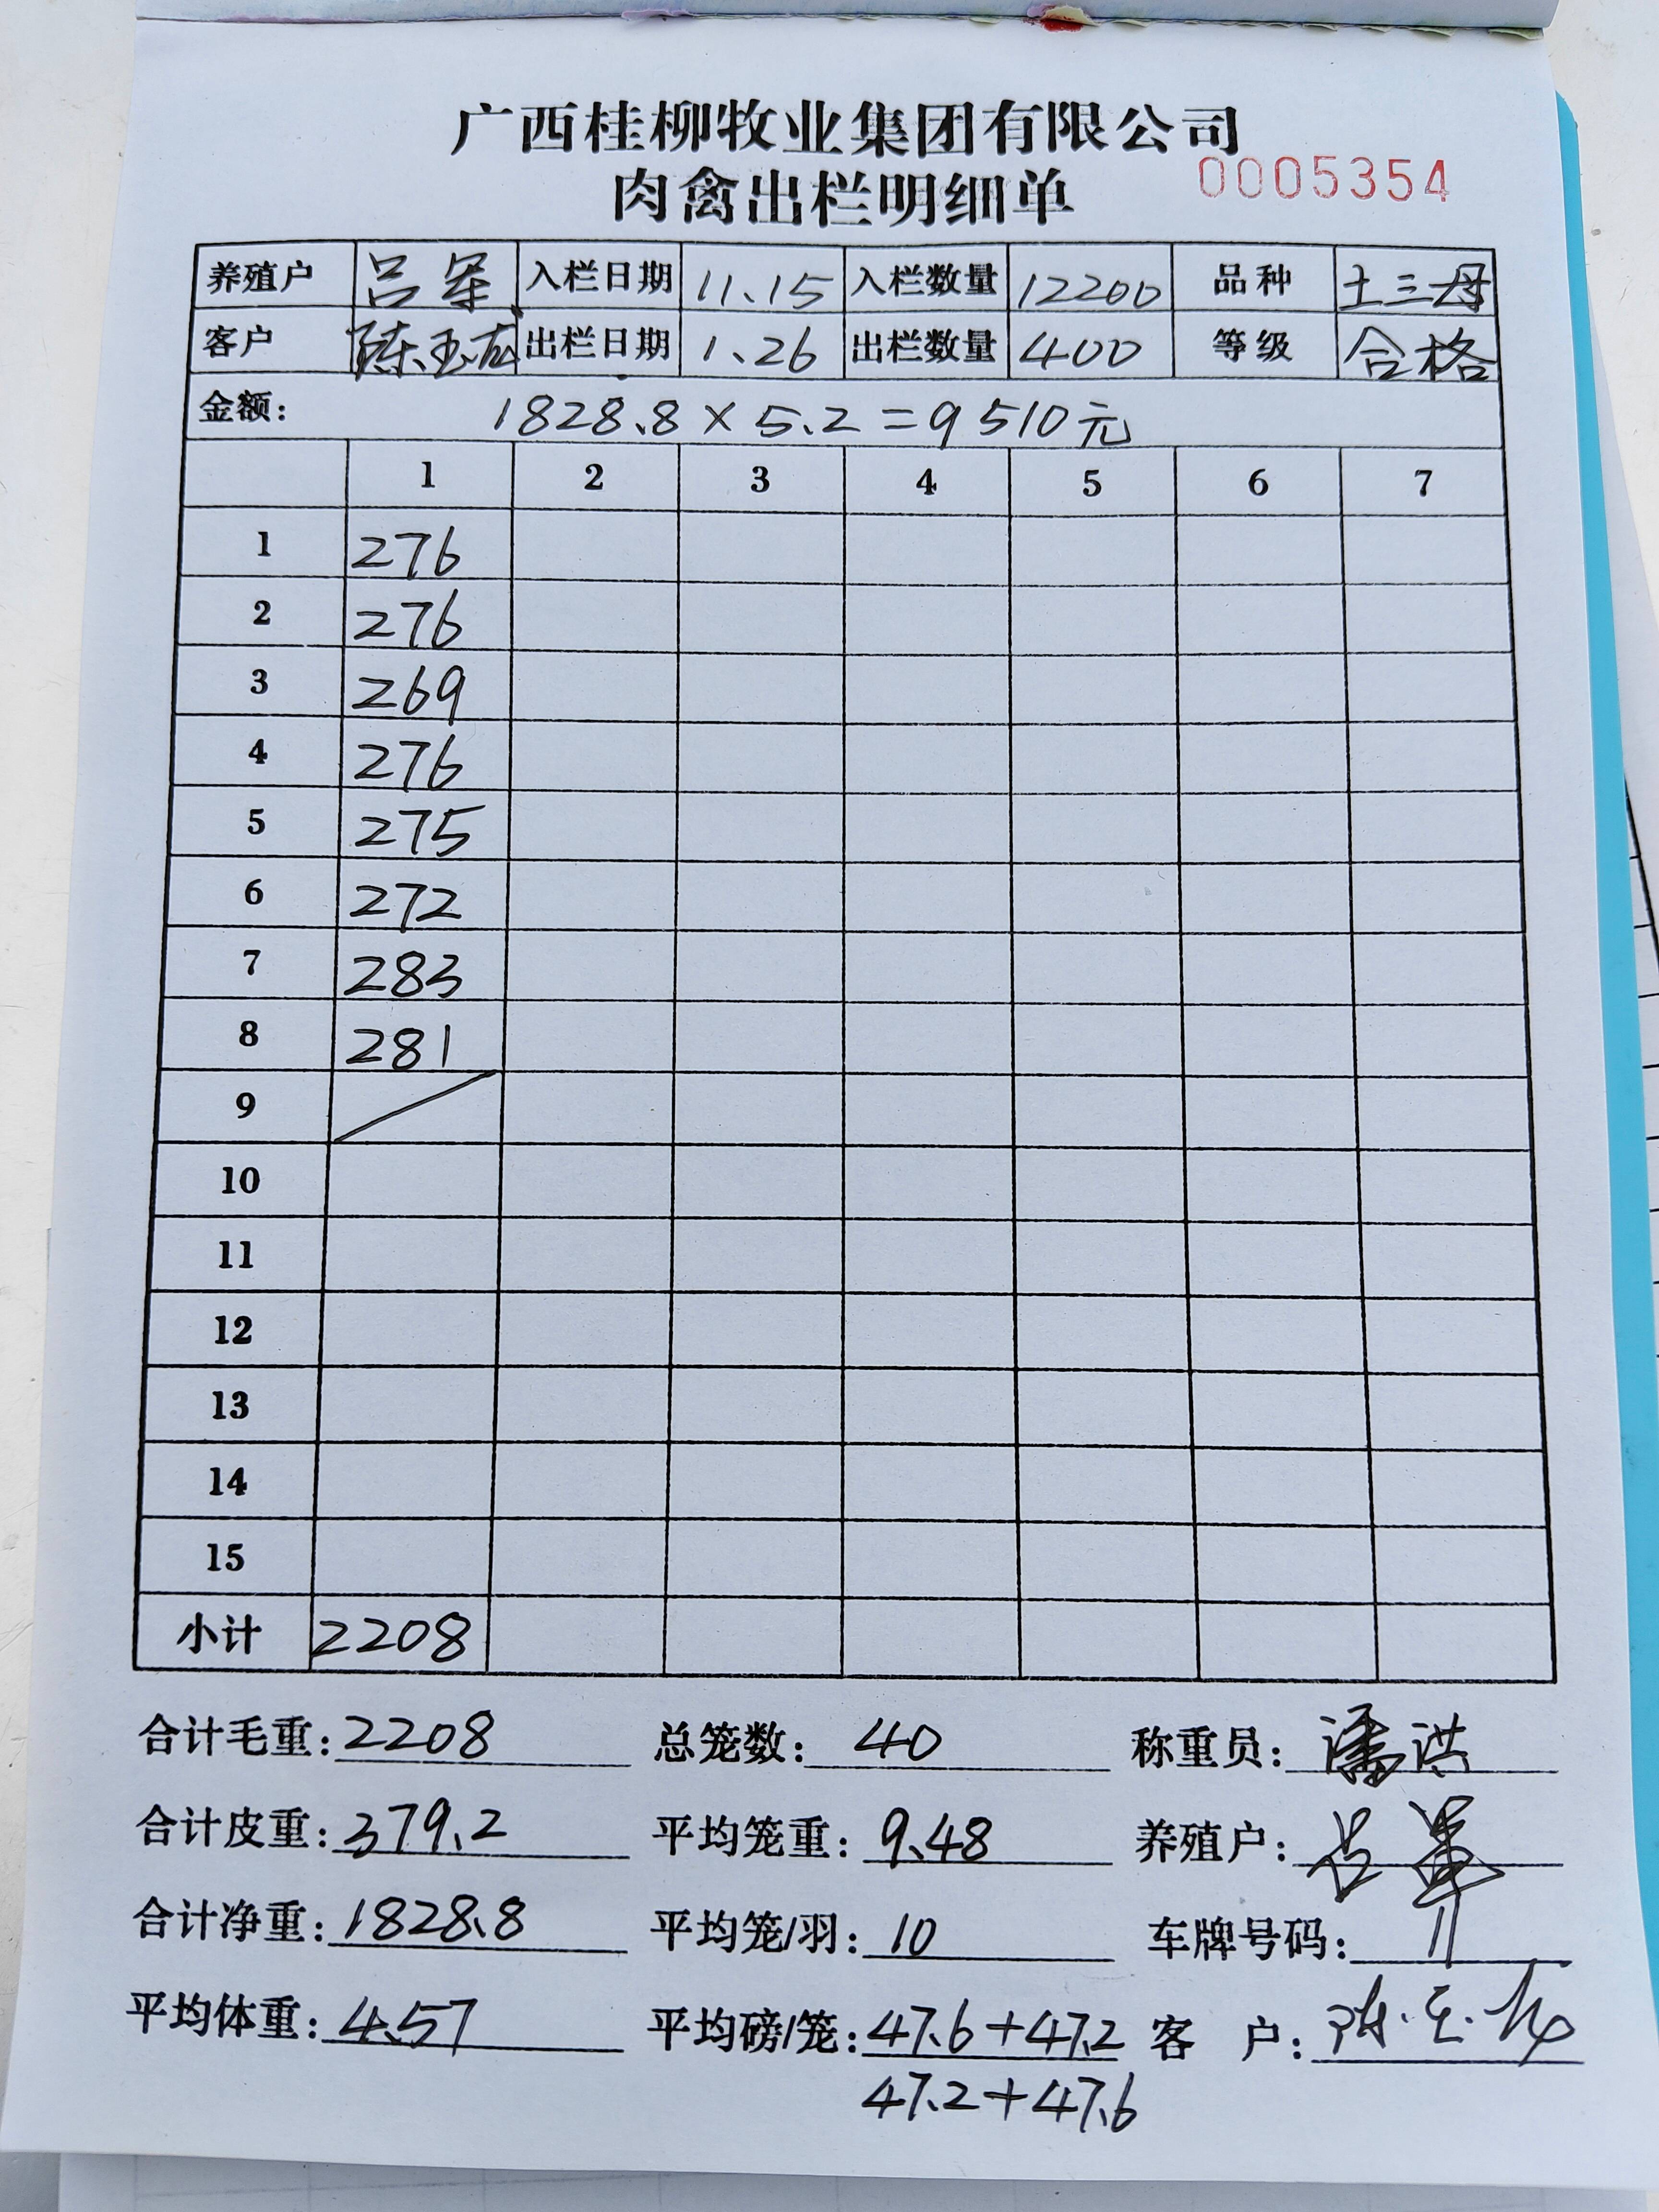 广西桂柳牧业集团有限公司
肉禽出栏明细单 0005354
养殖户 吕军 入栏日期 11.15 入栏数量 12200 品种 土三母
客户 陈玉 出栏日期 1.26 出栏数量 400 等级 合格
金额: 1828.8 × 5.2 = 9510元
1 2 3 4 5 6 7
1 276
2 276
3 269
4 276
5 275
6 272
7 283
8 281
9
10
11
12
13
14
15
小计 2208
合计毛重: 2208 总笼数: 40 称重员: 潘洪
合计皮重: 379.2 平均笼重: 9.48 养殖户: 吕军
合计净重: 1828.8 平均笼/羽: 10 车牌号码:
平均体重: 4.57 平均磅/笼: 47.6+47.2 客 户:
47.2+47.6